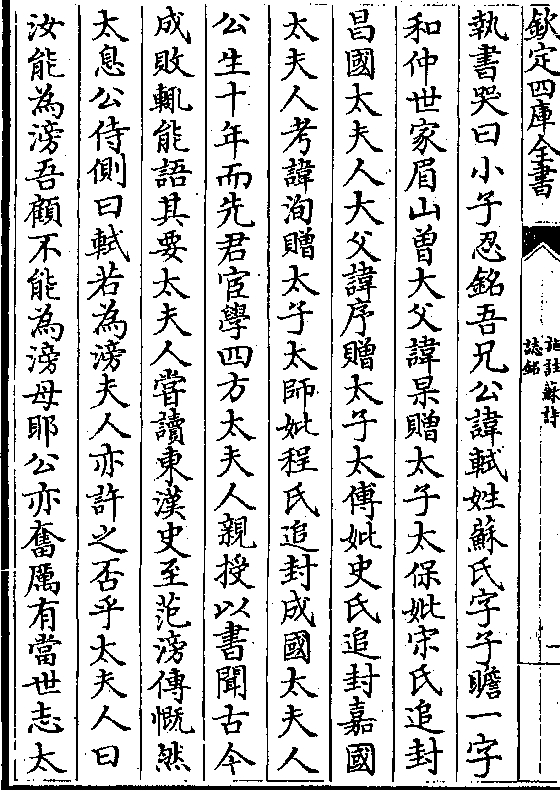 欽定四庫全書
施註蘇詩
誌銘
執書哭曰小子忍銘吾兄公諱軾姓蘇氏字子瞻一字
和仲世家眉山曾大父諱杲贈太子太保妣宋氏追封
昌國太夫人大父諱序贈太子太傅妣史氏追封嘉國
太夫人考諱洵贈太子太師妣程氏追封成國太夫人
公生十年而先君宦學四方太夫人親授以書聞古今
成敗輒能語其要太夫人嘗讀東漢史至范滂傳慨然
太息公侍側曰軾若為滂夫人亦許之否乎太夫人曰
汝能為滂吾顧不能為滂母耶公亦奮厲有當世志太